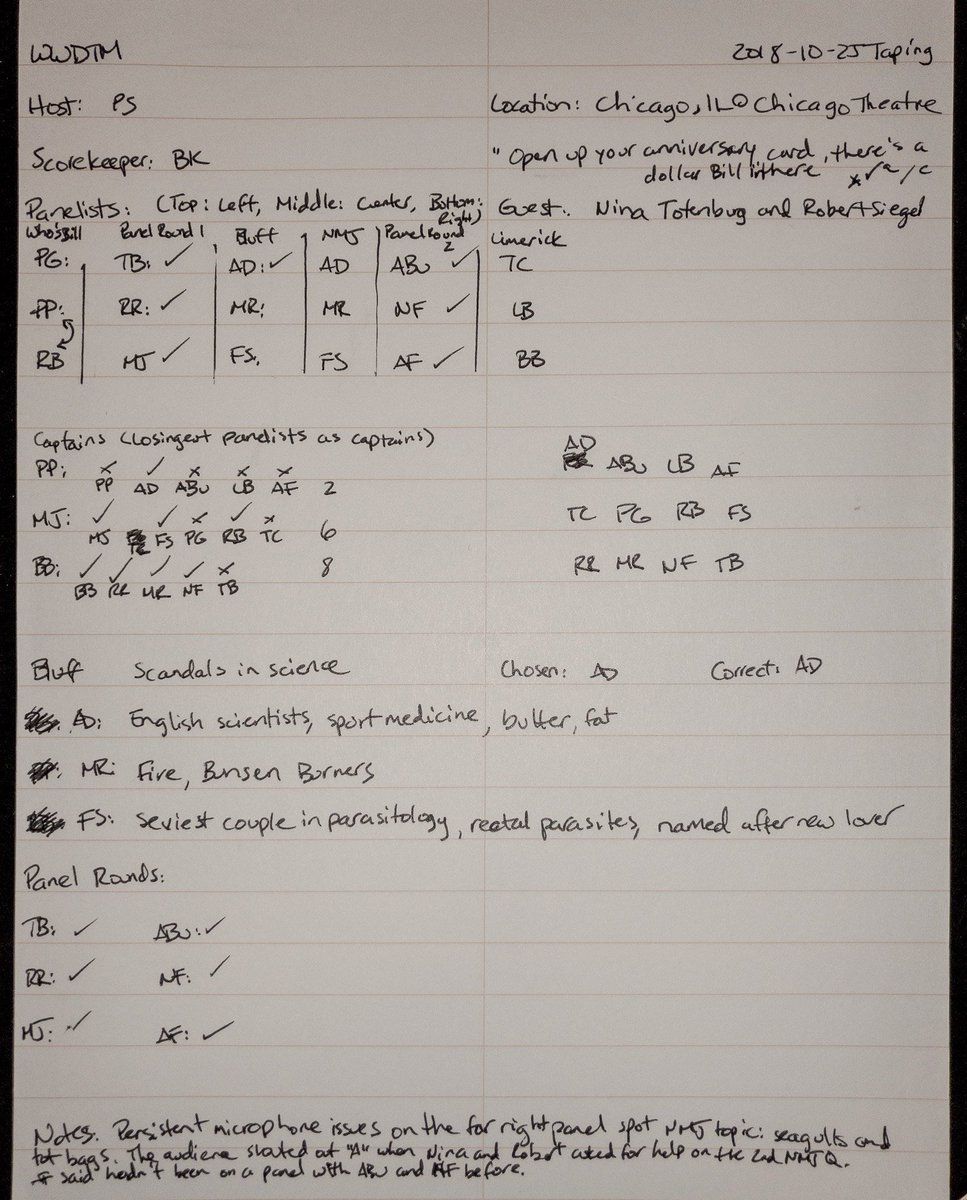 WWDTM 2018-10-25 Taping
Host: PS Location: Chicago, IL @ Chicago Theatre
Scorekeeper: BK "Open up your anniversary card, there's a
dollar Bill in there
Panelists: (Top: Left, Middle: Center, Bottom: Right) Guest: Nina Totenburg and Robert Siegel
Who's Bill Panel Round 1 Bluff NMJ Panel Round 2 Limerick
PG: TB: ✓ AD: ✓ AD ABU ✓ TC
PP: RR: ✓ MR: MR NF ✓ LB
RB MJ ✓ FS. FS AF ✓ BB
Captains (losingest panelists as captains)
AD
PP: × ✓ × × × ABU LB AF
PP AD ABU LB AF 2
MJ: ✓ ✓ × ✓ × TC PG RB FS
MJ FS PG RB TC 6
BB: ✓ ✓ ✓ ✓ × 8 RR MR NF TB
BB RR MR NF TB
Bluff Scandals in science Chosen: AD Correct: AD
AD: English scientists, sport medicine, butter, fat
MR: Fire, Bunsen Burners
FS: Sexiest couple in parasitology, rectal parasites, named after new lover
Panel Rounds:
TB: ✓ ABU: ✓
RR: ✓ NF: ✓
MJ: ✓ AF: ✓
Notes. Persistent microphone issues on the far right panel spot NMJ topic: seagulls and
tot bags. The audience shouted out "A" when Nina and Robert asked for help on the 2nd NMJ Q.
said hadn't been on a panel with ABU and AF before.